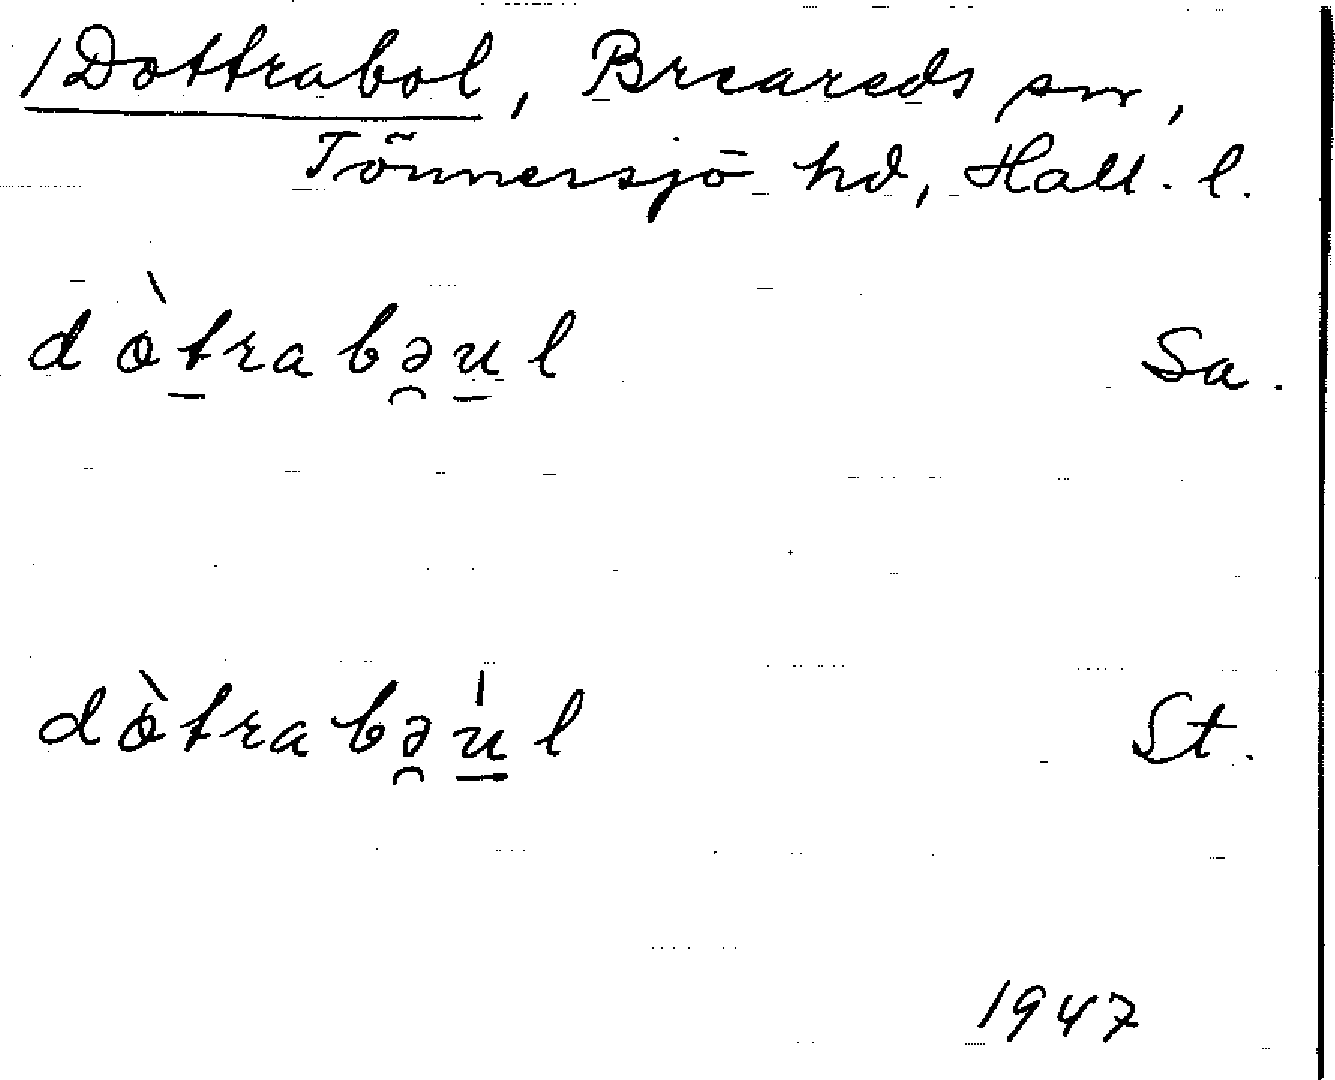 /Dottrabol, Breareds sn,
Tönnersjö hd, Hall. l.
dòtrabə̯u̲l Sa.
dòtrabə̯u̲̍l St.
1947